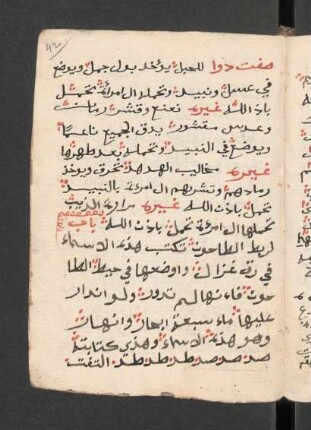 صفت دوا للحبل يؤخذ بول جمل ويوضع
في عسل ونبيد وتحمله ال امرأة تحمل
باذن الله غيره نعنع وقشر رمان
وعدس مقشور يدق الجميع ناعما
ويوضع في النبيد وتحمله بعد طهرها
غيره مخاليب الهدهد تحرق ويوخذ
رمادهم وتشربهم ال امرءة بالنبيد
تحمل باذن الله غيره مرارة الذيب
تحملها ال امرءة تحمل باذن الله باب
لربط الطاحون تكتب هذه الاسماء
في رق غزال واوضعها في حيط الطا
حون فانها لم تدور ولو اندار
عليها ماء سبعة ابحار وانهار
وهو هذه الاسماء وهذي كتابته
صد صد صد طد طد طد التفت